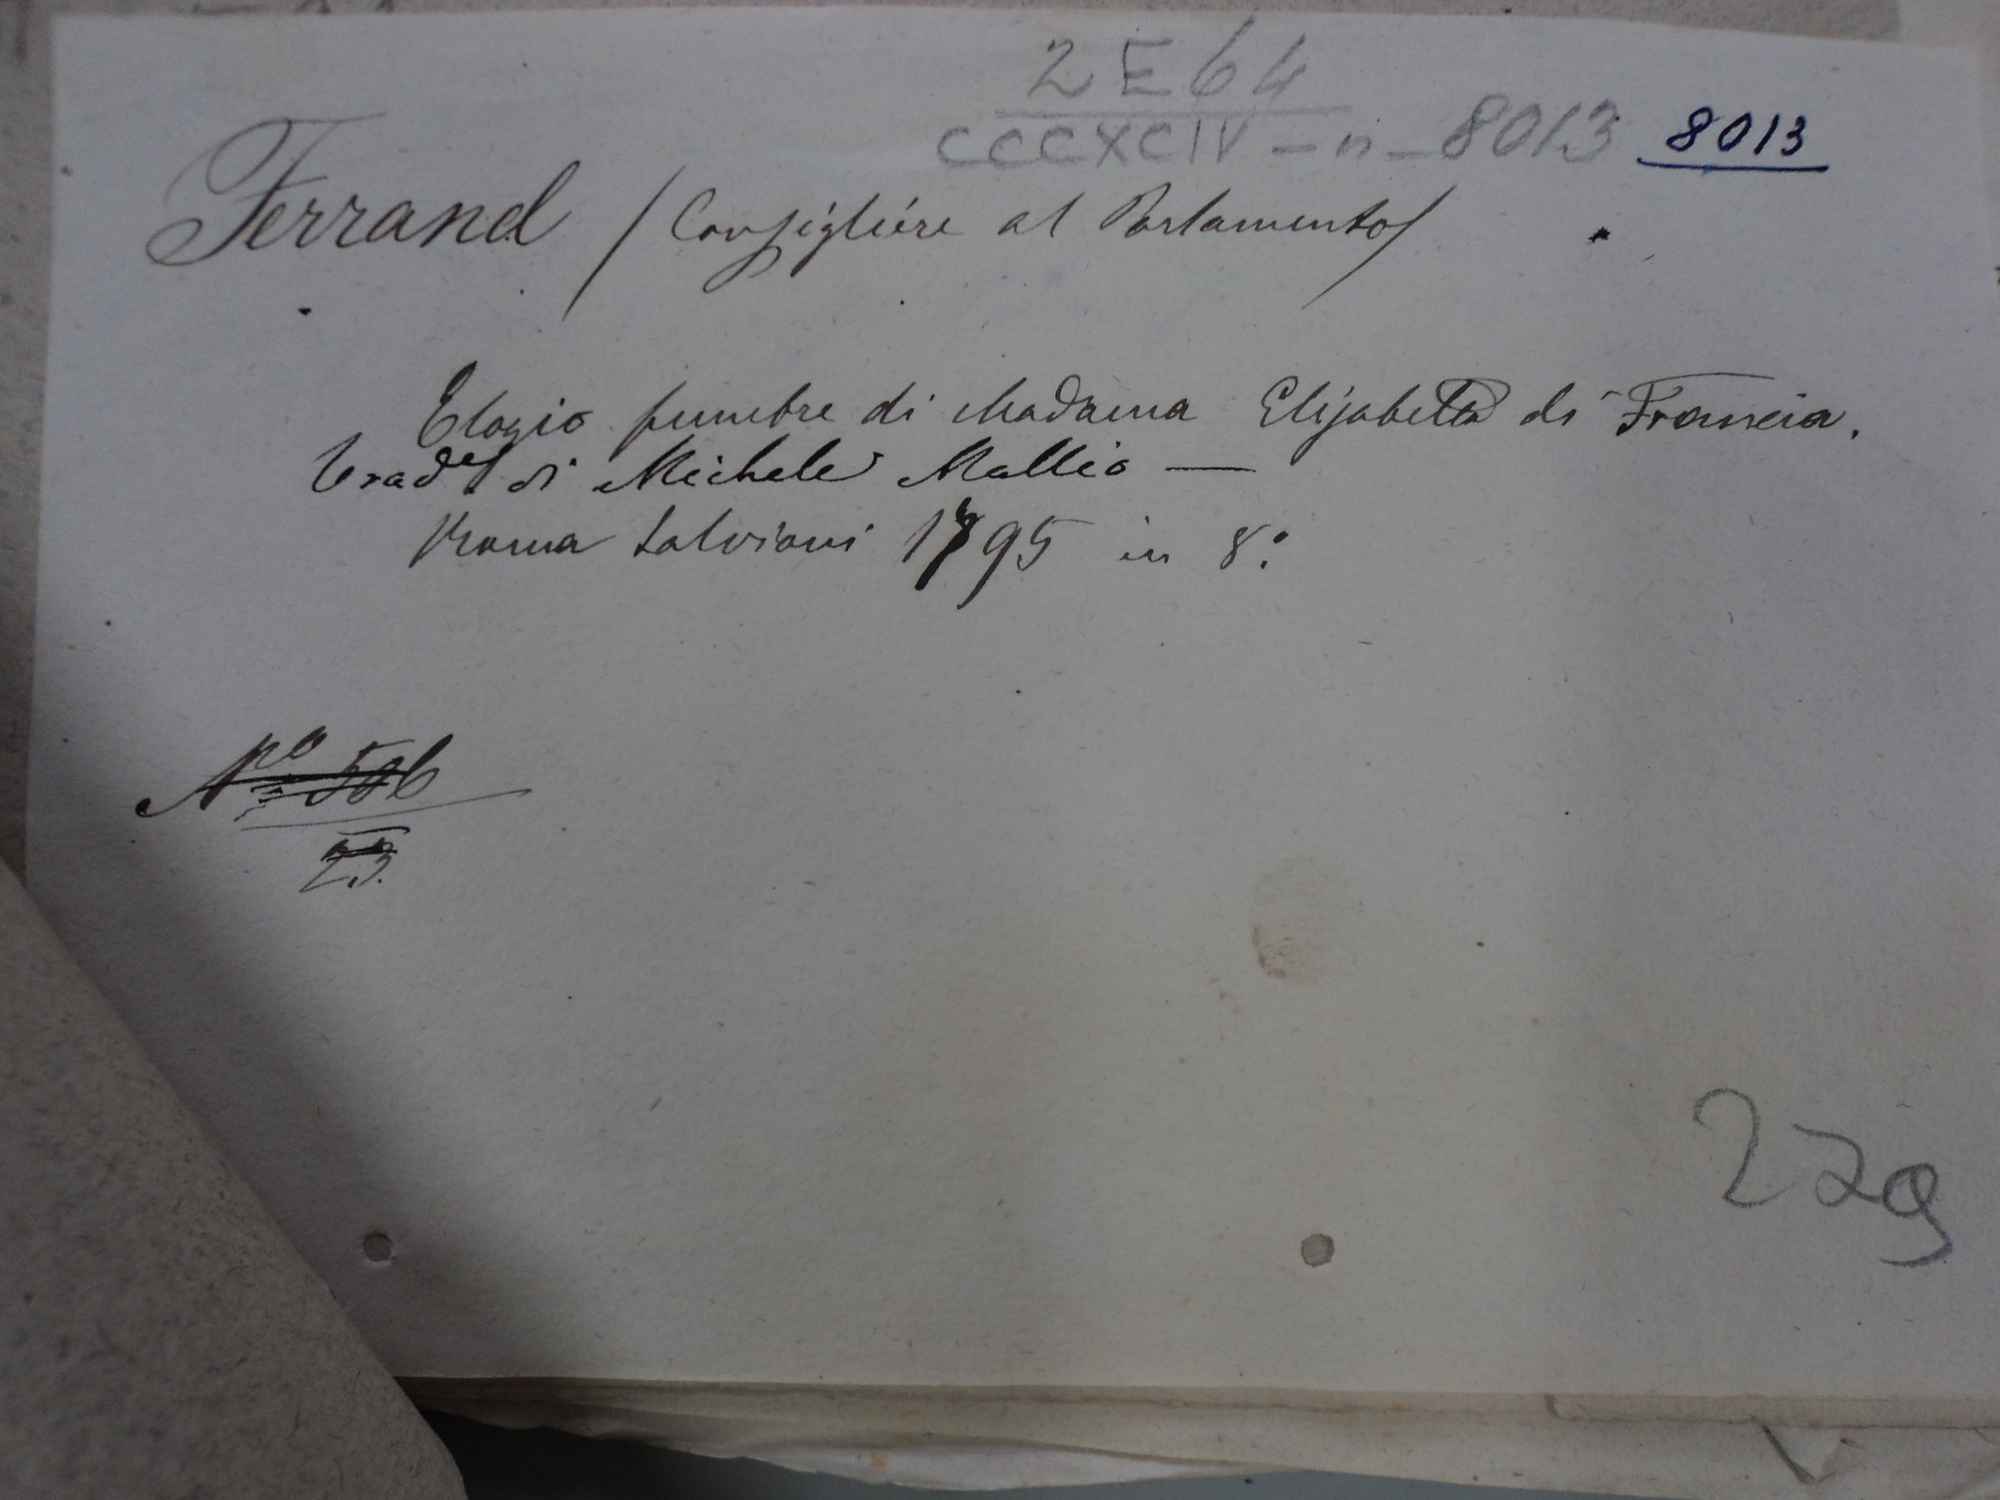 2E64
CCCXCIV - n - 8013 8013
Ferrand (Consigliére al Parlamento)
Elogio funebre di Madama Elisabetta di Francia.
trad.e di Michele Mallio —
Roma Salvioni 1795 in 8.o
No 506
23.
229